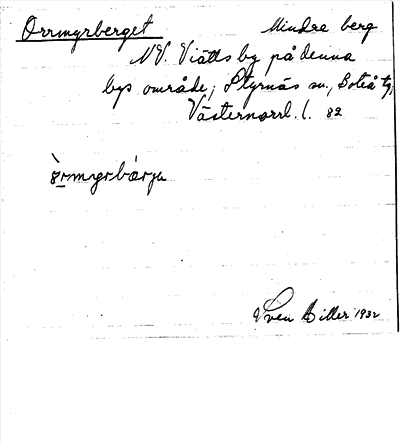 Orrmyrberget Mindre berg
NV. Viätts by på denna
bys område, Styrnäs sn., Boteå tg,
Västernorrl. l. 82
Sven Hiller 1932